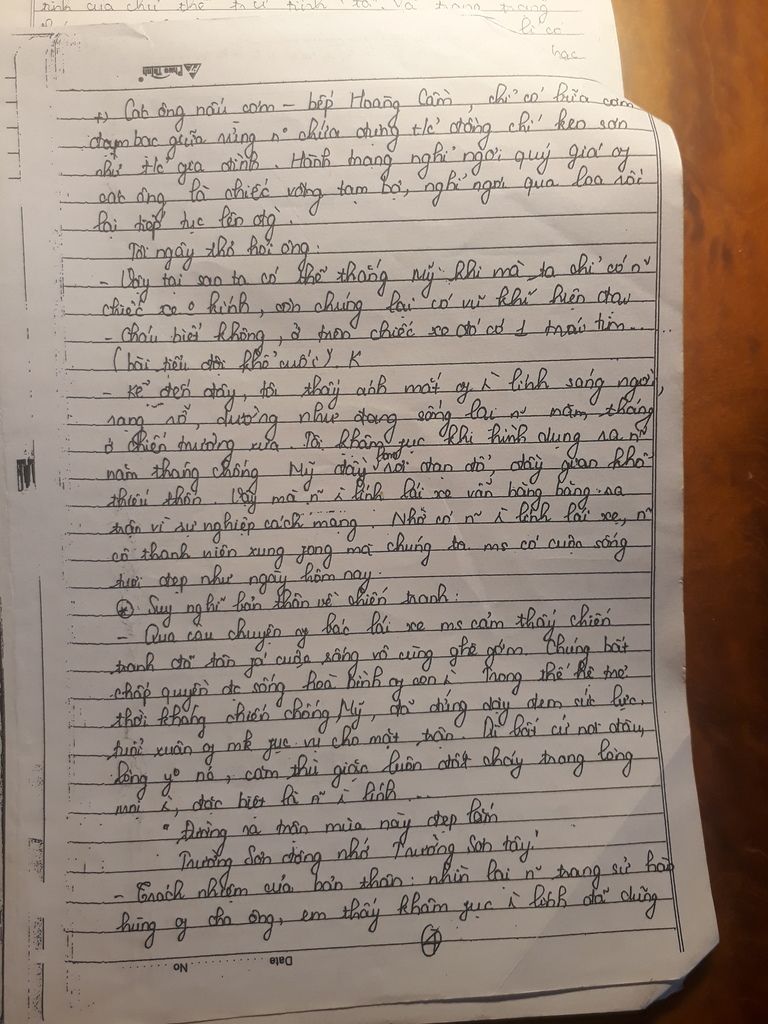 tình của chủ thể trữ tình
Phúc Thịnh
+) Các ông nấu cơm - bếp Hoàng Cầm, chỉ có bữa cơm
đạm bạc giữa rừng n° chứa đựng t/c đồng chí keo sơn
như t/c gia đình. Hành trang nghỉ ngơi quý giá of
các ông là chiếc võng tạm bợ, nghỉ ngơi qua loa rồi
lại tiếp tục lên
Tôi ngây thơ hỏi ông:
- Vậy tại sao ta có thể thắng Mỹ khi mà ta chỉ có n~
chiếc xe o kính, còn chúng lại có vũ khí hiện đại
- Cháu biết không, ở trên chiếc xe đó có 1 trái tim...
(bài tiểu đội khổ cuối). K
- Kể đến đây, tôi thấy ánh mắt of i lính sáng ngời,
rạng rỡ, dường như đang sống lại n~ năm tháng
ở chiến trường xưa. Tôi khâm phục khi hình dung ra n~
năm tháng chống Mỹ đầy bom rơi đạn đổ, đầy gian khổ
thiếu thốn. Vậy mà n~ i lính lái xe vẫn băng băng ra
trận vì sự nghiệp cách mạng. Nhờ có n~ i lính lái xe, n~
cô thanh niên xung jong mà chúng ta ms có cuộc sống
tươi đẹp như ngày hôm nay.
* Suy nghĩ bản thân về chiến tranh:
- Qua câu chuyện of bác lái xe ms cảm thấy chiến
tranh đã tàn já cuộc sống vô cùng ghê gớm. Chúng bất
chấp quyền dc sống hoà bình of con i. Trong thế hệ trẻ
thời kháng chiến chống Mỹ, đã đứng dậy đem sức lực,
tuổi xuân of mk jục vụ cho mặt trận. Dù bất cứ nơi đâu,
lòng yo nc, căm thù giặc luôn đốt cháy trong lòng
mọi i, đặc biệt là n~ i lính...
"Đường ra trận mùa này đẹp lắm
Trường Sơn đông nhớ Trường Sơn tây"
- Trách nhiệm của bản thân: nhìn lại n~ trang sử hào
hùng of cha ông, em thấy khâm jục i lính đã dũng
Date No